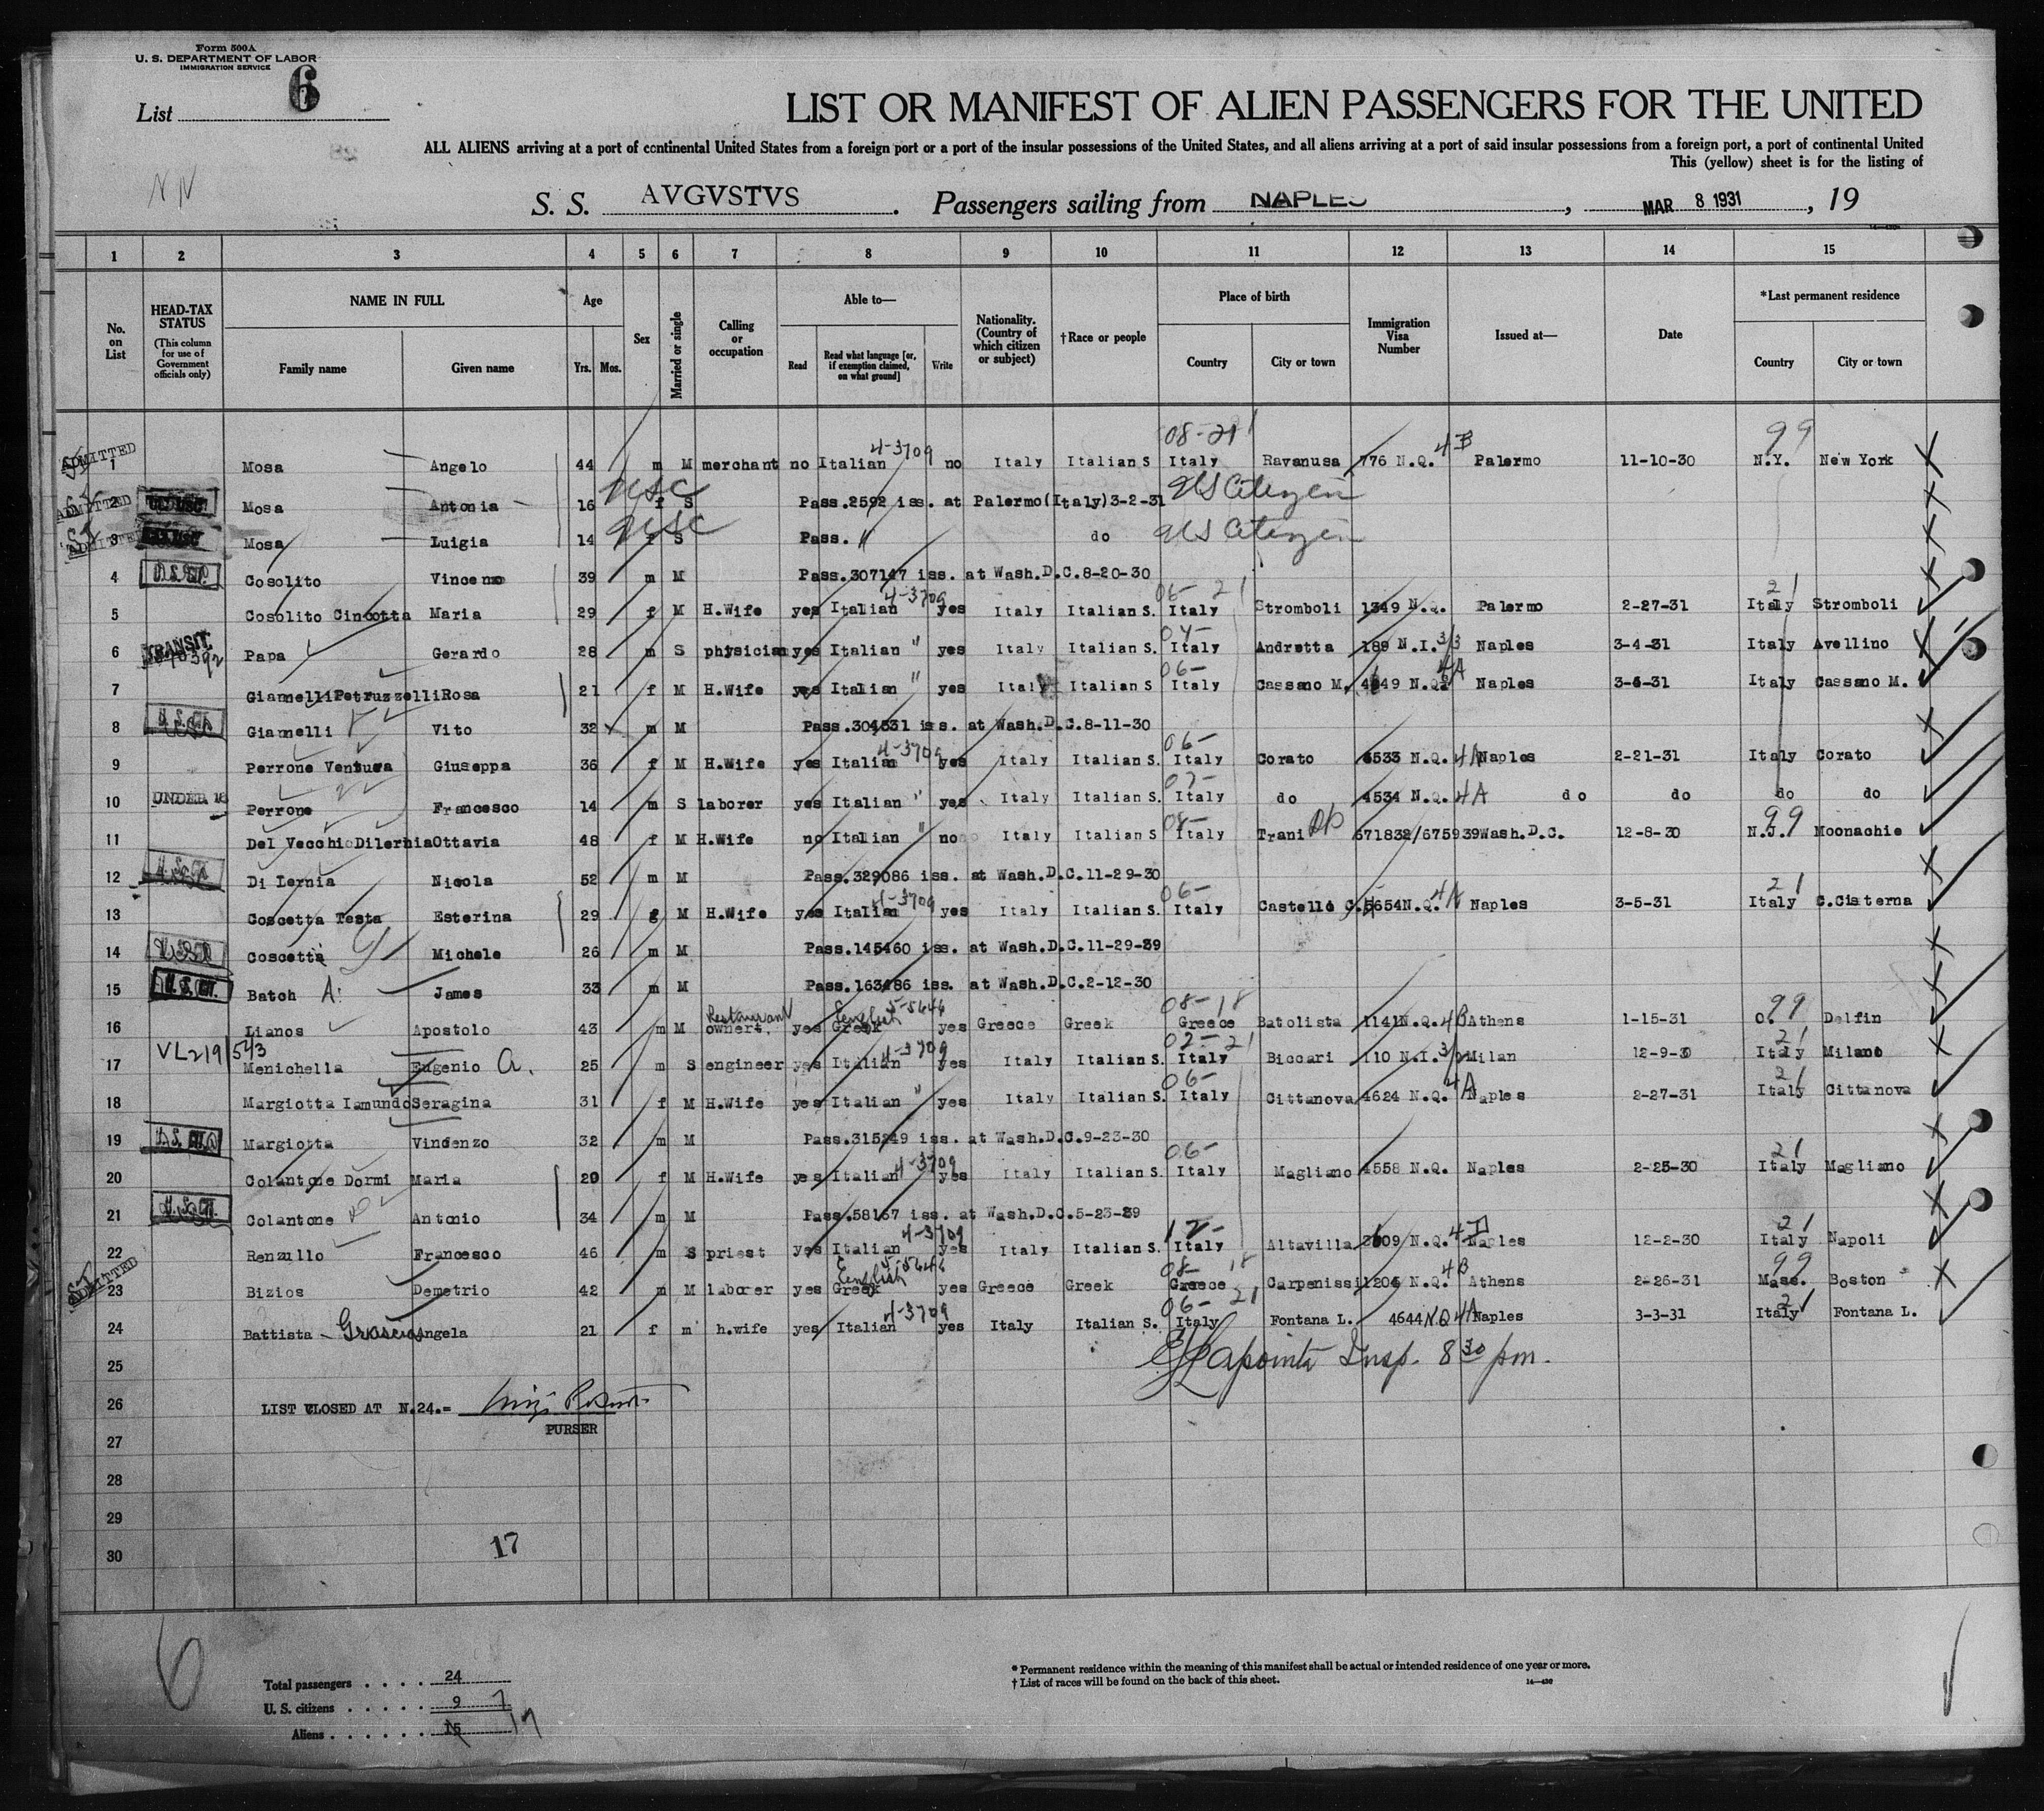 Form 500A
U. S. DEPARTMENT OF LABOR
IMMIGRATION SERVICE
List 6
LIST OR MANIFEST OF ALIEN PASSENGERS FOR THE UNITED
ALL ALIENS arriving at a port of continental United States from a foreign port or a port of the insular possessions of the United States, and all aliens arriving at a port of said insular possessions from a foreign port, a port of continental United
This (yellow) sheet is for the listing of
S. S. AVGVSTVS. Passengers sailing from NAPLES, MAR 8 1931, 19
1 2 3 4 5 6 7 8 9 10 11 12 13 14 15
No. on List
HEAD-TAX STATUS (This column for use of Government officials only)
NAME IN FULL Family name Given name
Age Yrs. Mos.
Sex
Married or single
Calling or occupation
Able to— Read Read what language [or, if exemption claimed, on what ground] Write
Nationality. (Country of which citizen or subject)
†Race or people
Place of birth Country City or town
Immigration Visa Number
Issued at—
Date
*Last permanent residence Country City or town
08-21 99
ADMITTED 1 Mosa Angelo 44 m M merchant no Italian 4-3709 no Italy Italian S Italy Ravanusa 776 N.Q. 4B Palermo 11-10-30 N.Y. New York
ADMITTED 2 Mosa Antonia 16 USC f S Pass.2592 iss. at Palermo(Italy)3-2-31 US Citizen
ADMITTED 3 Mosa Luigia 14 USC f S Pass. " do US Citizen
4 Cosolito Vincenzo 39 m M Pass.307147 iss. at Wash.D.C.8-20-30
5 Cosolito Cincotta Maria 29 f M H.Wife yes Italian 4-3709 yes Italy Italian S. 06- 21 Italy Stromboli 1349 N.Q. Palermo 2-27-31 21 Italy Stromboli
TRANSIT. 6 Papa Gerardo 28 m S physician yes Italian " yes Italy Italian S. 04- Italy Andretta 189 N.I. 3/3 Naples 3-4-31 Italy Avellino
7 GiannelliPetruzzelliRosa 21 f M H.Wife yes Italian " yes Italy Italian S 06- Italy Cassano M. 4649 N.Q. 4A Naples 3-6-31 Italy Cassano M.
8 Giannelli Vito 32 m M Pass.304531 iss. at Wash.D.C.8-11-30
9 Perrone Ventura Giuseppa 36 f M H.Wife yes Italian 4-3709 yes Italy Italian S. 06- Italy Corato 4533 N.Q. 4A Naples 2-21-31 Italy Corato
10 UNDER 16 Perrone Francesco 14 m S laborer yes Italian " yes Italy Italian S. 07- Italy do 4534 N.Q. 4A do do do do
11 Del Vecchio Dilernia Ottavia 48 f M H.Wife no Italian " no Italy Italian S 08- Italy Trani 671832/675939 Wash.D.C. 12-8-30 99 N.J. Moonachie
12 Di Lernia Nicola 52 m M Pass.329086 iss. at Wash.D.C.11-29-30
13 Coscetta Testa Esterina 29 g M H.Wife yes Italian 4-3709 yes Italy Italian S. 06- Italy Castello C. 5654 N.Q. 4A Naples 3-5-31 21 Italy C.Cisterna
14 Coscetta Michele 26 m M Pass.145460 iss. at Wash.D.C.11-29-29
15 Batch A. James 33 m M Pass.163486 iss. at Wash.D.C.2-12-30
16 Lianos Apostolo 43 m M Restaurant owner yes Greek English 5-5646 yes Greece Greek 08-18 Greece Batolista 1141 N.Q. 4B Athens 1-15-31 99 O. Delfin
17 VL219543 Menichella Eugenio A. 25 m S engineer yes Italian 4-3709 yes Italy Italian S. 02-21 Italy Biccari 110 N.I. 3/2 Milan 12-9-30 21 Italy Milano
18 Margiotta Iamundo Seragina 31 f M H.Wife yes Italian " yes Italy Italian S. 06- Italy Cittanova 4624 N.Q. 4A Naples 2-27-31 21 Italy Cittanova
19 Margiotta Vincenzo 32 m M Pass.315249 iss. at Wash.D.C.9-23-30
20 Colantone Dormi Maria 29 f M H.Wife yes Italian 4-3709 yes Italy Italian S. 06- Italy Magliano 4558 N.Q. Naples 2-25-30 21 Italy Magliano
21 Colantone Antonio 34 m M Pass.58167 iss. at Wash.D.C.5-23-29
22 Renzullo Francesco 46 m S priest yes Italian 4-3709 yes Italy Italian S. 12- Italy Altavilla N.Q. Naples 12-2-30 21 Italy Napoli
ADMITTED 23 Bizios Demetrio 42 m M laborer yes Greek English 5-5646 yes Greece Greek 08- 18 Greece Carpenissi 1206 N.Q. 4B Athens 2-26-31 99 Mass. Boston
24 Battista - Angela 21 f m h.wife yes Italian 4-3709 yes Italy Italian S. 06- 21 Italy Fontana L. 4644 N.Q 4A Naples 3-3-31 21 Italy Fontana L.
25 Lapointe Insp. 8 30 pm.
26 LIST CLOSED AT N.24.=
PURSER
27
28
29
30
17
6
Total passengers . . . . 24
U. S. citizens . . . . . 9 7
Aliens . . . . . . 15 17
* Permanent residence within the meaning of this manifest shall be actual or intended residence of one year or more.
† List of races will be found on the back of this sheet. 14—430